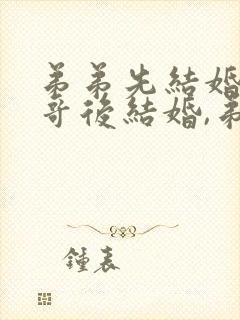 弟弟先結婚
哥後結婚,弟
鍾表